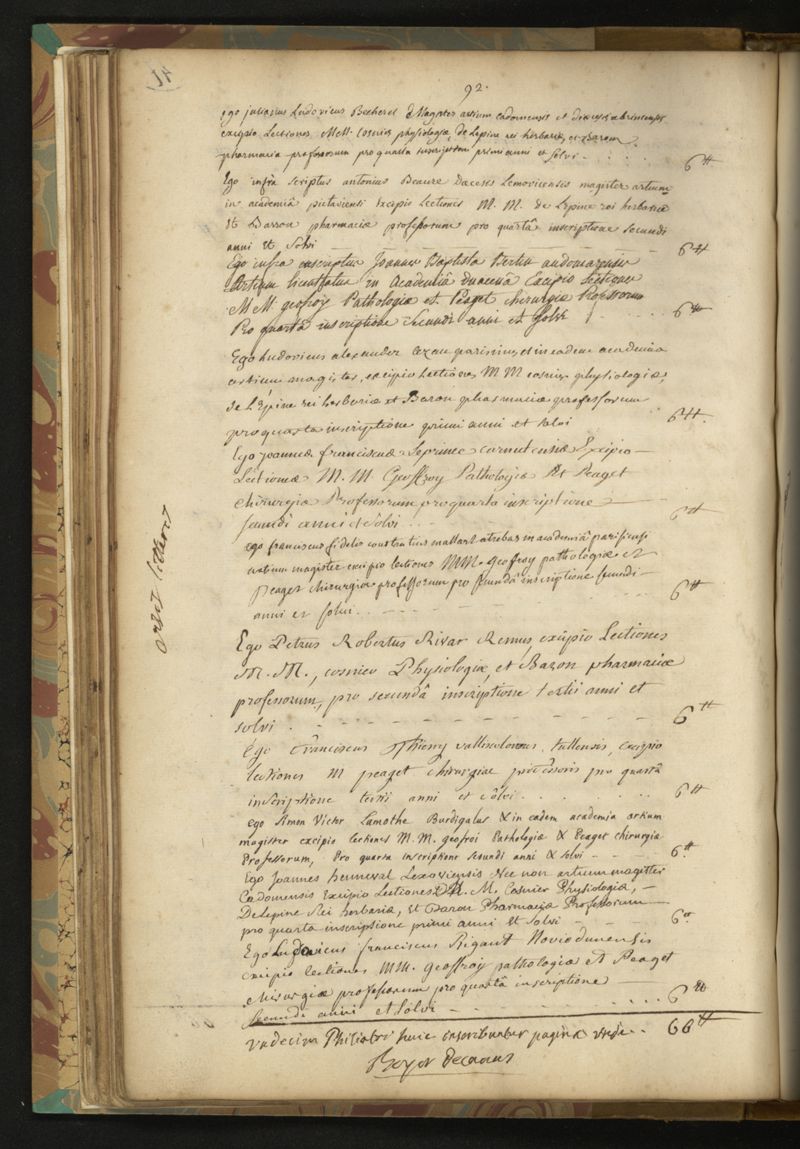 92.
ego julianus Ludovicus Becherel Magister artium cadomensis et diocesis abrincensis
excipio Lectiones MM. Cosnier physiologiæ, de Lepine rei herbariæ, et Baron
pharmaciæ professorum pro quarta inscriptione primi anni et solvi . . . . . 6tt
Ego infra scriptus antonius Beaure Dioceses Lemovicensis magister artium
in academiâ pictaviensi Excipio Lectiones M. M. de Lepine rei herbariæ
Et Baron pharmaciæ professorum pro quartâ inscriptione secundi
anni Et Solvi 6tt
Ego infra inscriptus Joannes Baptista Bertin audomarensis
Artium licentiatus in Academiâ duacenâ Excipio lectiones
MM. geofroy Pathologiæ et Peaget chirurgiæ Professorum
Pro quartâ inscriptione Secundi anni et Solvi . . . . 6tt
Ego Ludovicus alexander parisinus, et in eadem academia
artium magister, excipio Lectiones, MM cosnier physiologiæ,
de L'Epine rei herbariæ et Baron pharmaciæ professorum
pro quarta inscriptione primi anni et solvi 6tt.
Ego joannes franciscus Leprince carnutensis Excipio
Lectiones M. M Geoffroy Pathologiæ Et Peaget
chirurgiæ Professorum pro quarta inscriptione
secundi anni et solvi . . . 6tt
ego franciscus fidelis mallart atrebas in academiâ parisiensi
artium magister excipio lectiones MM. Geofroy pathologiæ et
Peaget chirurgiæ professorum pro secundâ inscriptione secundi
anni et solvi . . . 6tt
Ego Petrus Robertus Rivar Remus, excipio Lectiones
M. M., cosnier Physiologiæ, et Baron pharmaciæ
professorum, pro secundâ inscriptione tertii anni et
solvi . 6tt
Ego Franciscus Thiery tullensis, excipio
lectiones M peaget chirurgiæ professoris pro quartâ
inscriptione tertii anni et solvi . . . . . . 6tt
ego Simon Victor Lamothe Burdigalus & in eadem academia artium
magister excipio lectiones M. M. geofroi Pathologiæ & Peaget chirurgiæ
Professorum, Pro quarta inscriptione secundi anni & solvi - - - 6tt
Ego Joannes hennival Lexoviensis Nec non artium magister
Cadomensis Excipio Lectiones M. M. Cosnier Physiologiæ, -
DeLepine Rei herbariæ, Et Baron Pharmaciæ Professorum
pro quarta inscriptione primi anni Et solvi - - - 6tt
Ego Ludovicus franciscus Rigaut Noviodunensis
excipio lectiones MM. Geoffroy pathologiæ Et Peaget
chirurgiæ professorum pro quartâ inscriptione
secundi anni et solvi - - . . . . 6tt
undecim Philiatri huic inscribuntur paginæ unde . . 66tt
Boyer decanus